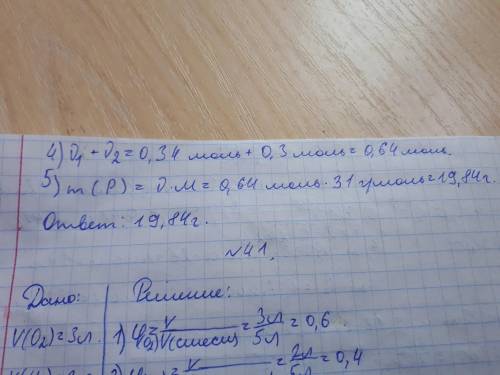 4) ν₁ + ν₂ = 0,34 моль + 0,3 моль = 0,64 моль.
5) m(P) = ν · M = 0,64 моль · 31 г/моль = 19,84г.
Ответ: 19,84г.
№41.
Дано: Решение:
V(O₂)=3л. 1) φ(O₂) = V / V(смеси) = 3л / 5л = 0,6
2) = V = 2л / 5л = 0,4